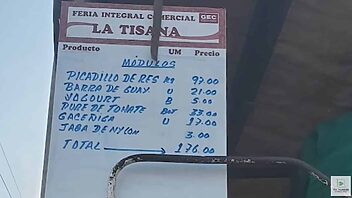 FERIA INTEGRAL COMERCIAL GEC
LA TISANA
Producto UM Precio
MÓDULOS
PICADILLO DE RES Kg 97.00
BARRA DE GUAY. U 21.00
YOGOURT B 5.00
PURE DE TOMATE Bot 33.00
GACEÑIGA U 17.00
JABA DE NYLON 3.00
TOTAL 176.00